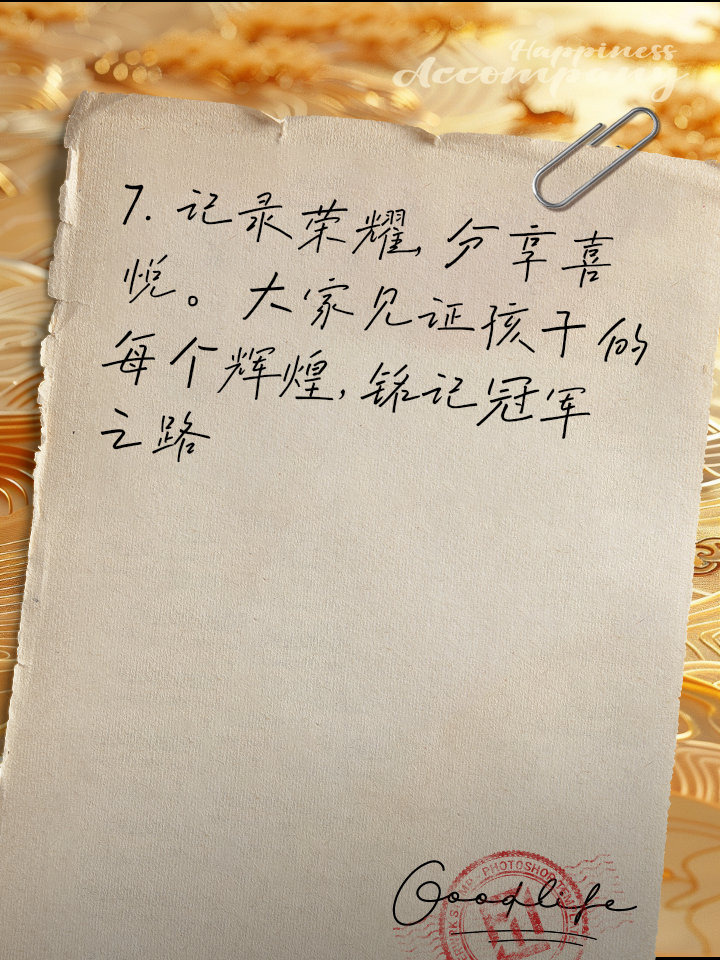 Happiness
Accompany
7. 记录荣耀, 分享喜
悦。大家见证孩子的
每个辉煌, 铭记冠军
之路
PHOTOSHOP
Goodlife